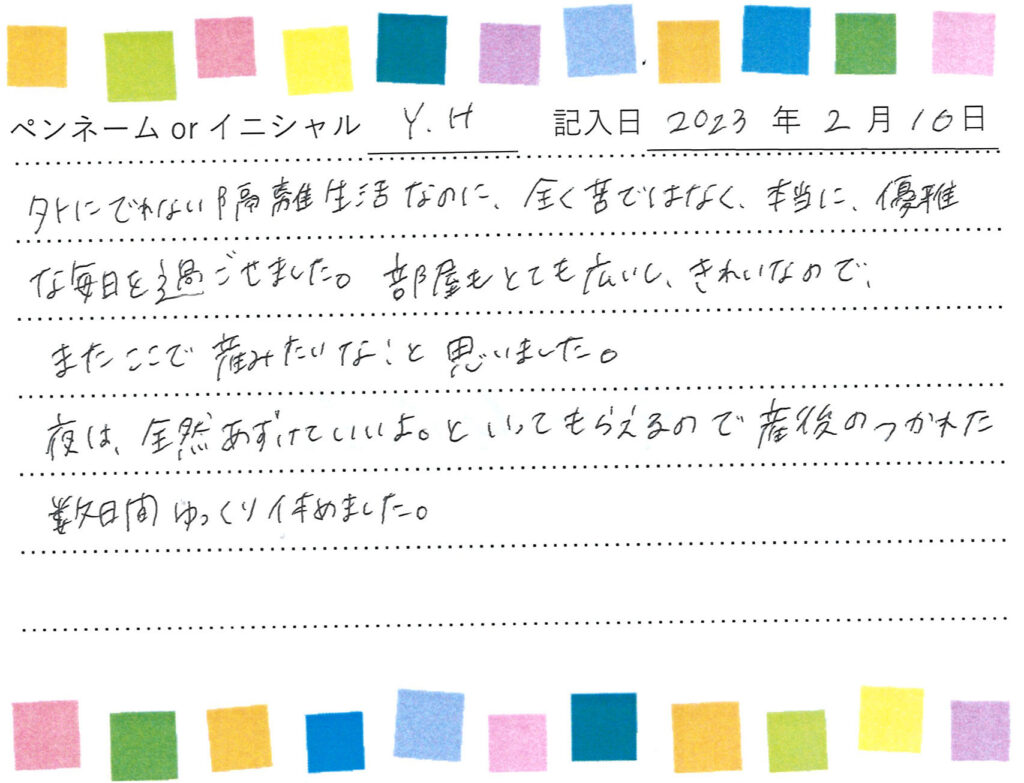 ペンネーム or イニシャル Y.H 記入日 2023 年 2 月 10 日
外にでれない隔離生活なのに、全く苦ではなく、本当に、優雅
な毎日を過ごせました。部屋もとても広いし、きれいなので、
またここで産みたいな！と思いました。
夜は、全然あずけていいよ。といってもらえるので産後のつかれた
数日間ゆっくり休めました。